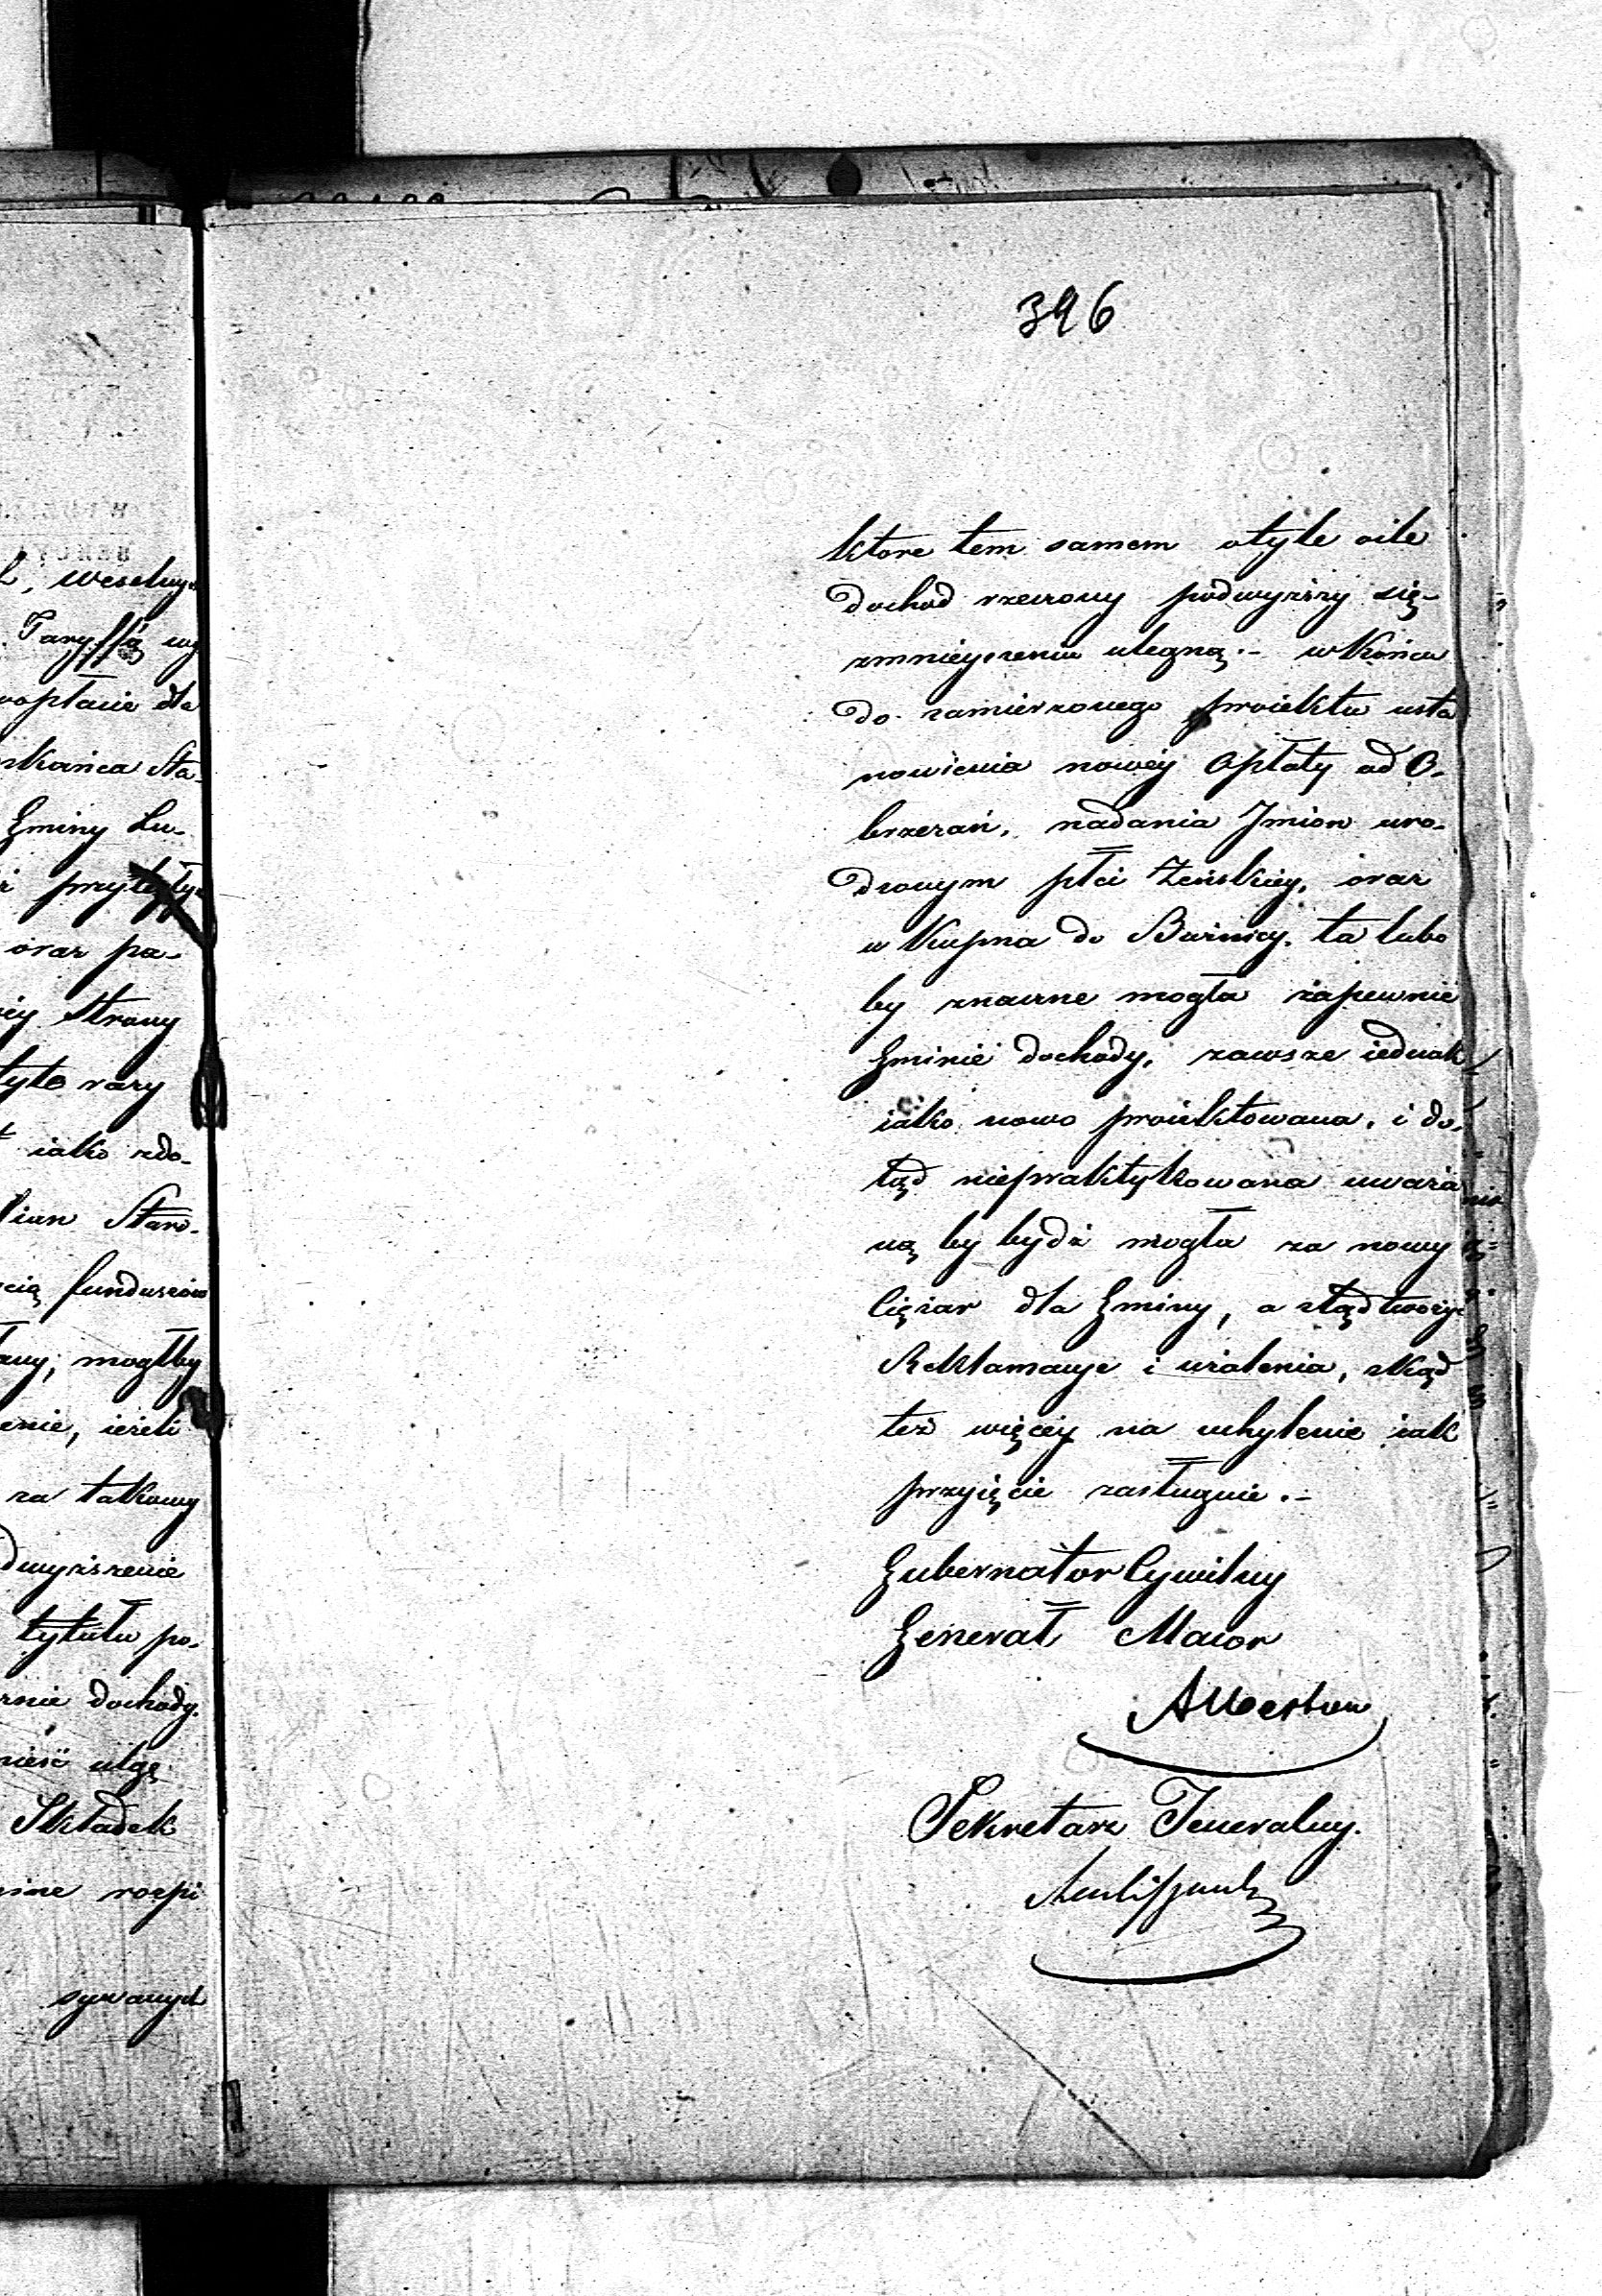 396
ktore tem samem otyle oile
dochod rzeczony podwyższy się
zmnieyszeniu ulegną.– wkońcu
do zamierzonego proiektu usta
nowienia nowéy opłaty od O-
brzezań, nadania Jmion uro-
dzonym płci Żeńskiey, oraz
wkupna do Bużnicy, ta lubo
by znaczne mogła zapewnić
Gminie dochody, zawsze iednak
iako nowo proiektowana, i do-
tąd niepraktykowana uważa
ną by bydź mogła za nowy
Ciężar dla Gminy, a ztąd tworzyć
Reklamacye i użalenia, zkąd
też więcey na uchylenie iak
przyięcie zasługuie.–
Gubernator Cywilny
Generał Maior
Sekretarz Jeneralny.
weselny
Taryffą
opłacie dla
Gminy Lu-
oraz pa-
Strony
tyle razy
iako zdo-
funduszów
mogłby
ieżeli
za takowy
tytułu po-
dochody.
ulgę
Składek
rozpi
sywanych